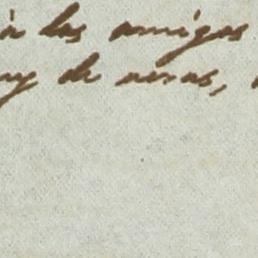 à los amigos
uy de veras,